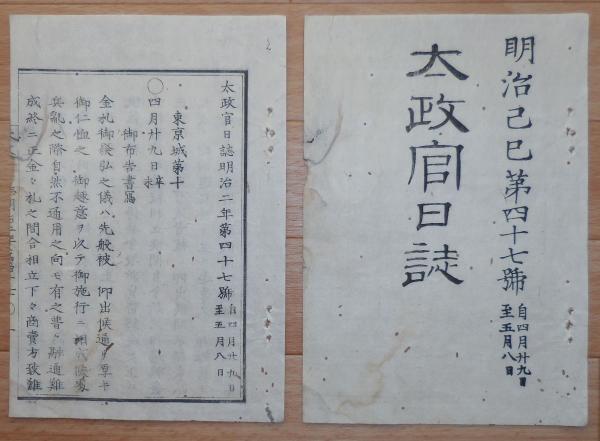 明治己巳第四十七號 自四月廿九日至五月八日
太政官日誌
太政官日誌明治二年第四十七號 自四月廿九日至五月八日
東京城第十
○四月廿九日
御布告書寫
金札御發弘之儀ハ先般被 仰出候通リ
御仁恤之 御趣意ヲ以テ御施行ニ相成候處
兵亂之際自然不通用之向モ有之普ク融通難
成終ニ正金ト札之間合相立下々商賣方致難